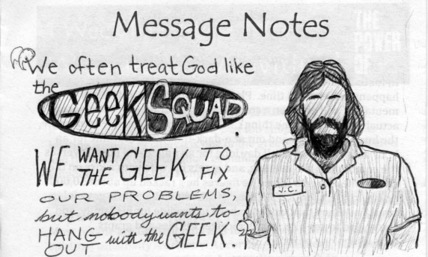 Message Notes
"We often treat God like
the GEEK SQUAD.
WE WANT THE GEEK TO FIX
OUR PROBLEMS,
but nobody wants to
HANG OUT with the GEEK."
J.C.